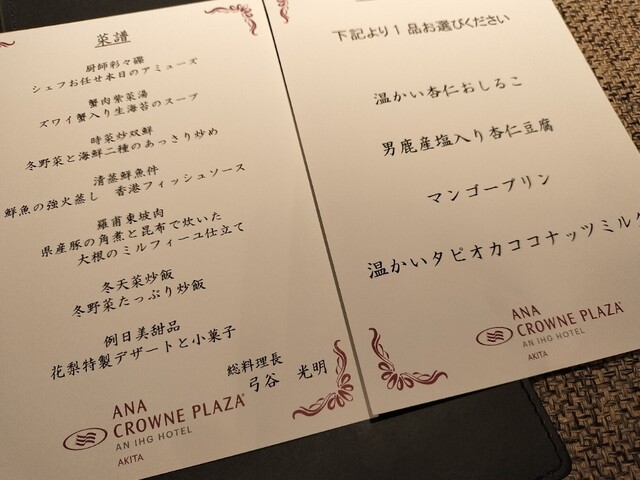 菜譜
厨師彩々碟
シェフお任せ本日のアミューズ
蟹肉紫菜湯
ズワイ蟹入り生海苔のスープ
時菜炒双鮮
冬野菜と海鮮二種のあっさり炒め
清蒸鮮魚件
鮮魚の強火蒸し 香港フィッシュソース
羅甫東坡肉
県産豚の角煮と昆布で炊いた
大根のミルフィーユ仕立て
冬天菜炒飯
冬野菜たっぷり炒飯
例日美甜品
花梨特製デザートと小菓子
総料理長
弓谷 光明
ANA
CROWNE PLAZA
AN IHG HOTEL
AKITA
下記より1品お選びください
温かい杏仁おしるこ
男鹿産塩入り杏仁豆腐
マンゴープリン
温かいタピオカココナッツミルク
ANA
CROWNE PLAZA
AN IHG HOTEL
AKITA